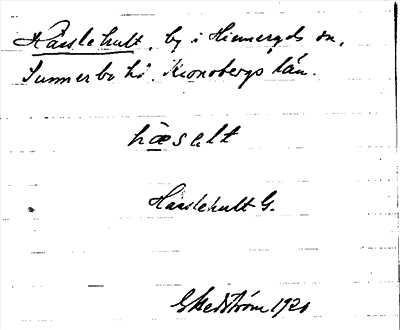 Hässlehult, by i Hinneryds sn,
Sunnerbo hd. Kronobergs län.
hæsalt
Hässlehult G.
G Hedström 1920